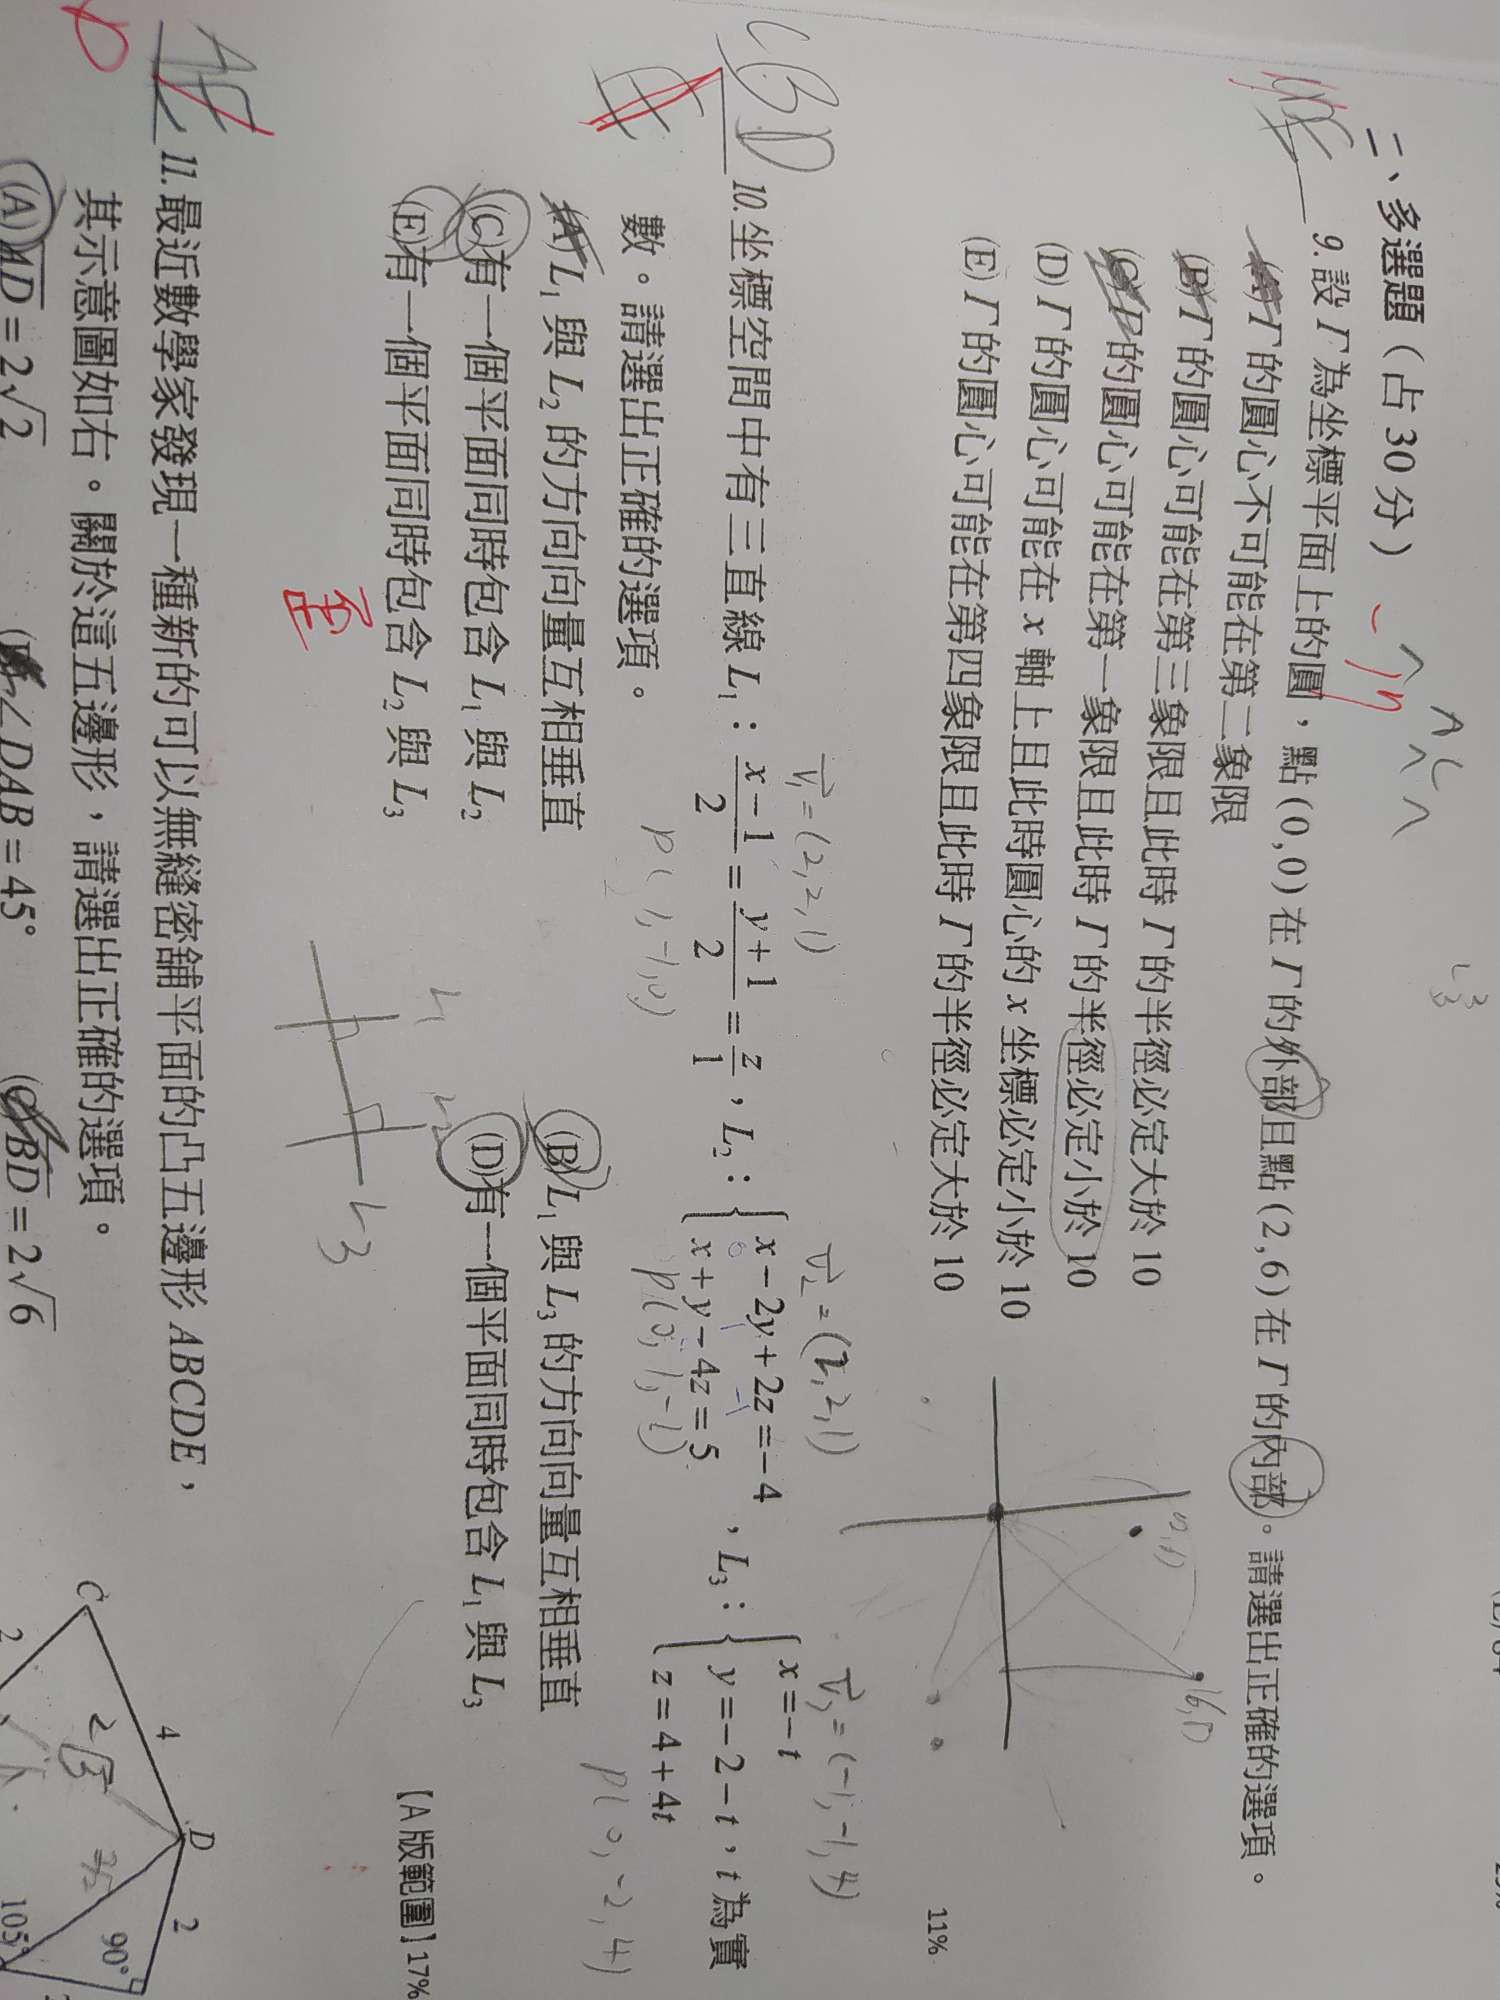 二、多選題(占 30 分)
9. 設 Γ 為坐標平面上的圓，點 (0,0) 在 Γ 的外部且點 (2,6) 在 Γ 的內部。請選出正確的選項。
(A) Γ 的圓心不可能在第二象限
(B) Γ 的圓心可能在第三象限且此時 Γ 的半徑必定大於 10
(C) Γ 的圓心可能在第一象限且此時 Γ 的半徑必定小於 10
(D) Γ 的圓心可能在 x 軸上且此時圓心的 x 坐標必定小於 10
(E) Γ 的圓心可能在第四象限且此時 Γ 的半徑必定大於 10
11%
V₁=(2,2,1) V₂=(2,2,1) V₃=(-1,-1,4)
BD
10. 坐標空間中有三直線 L₁：(x-1)/2 = (y+1)/2 = z/1，L₂：{x-2y+2z=-4, x+y-4z=5，L₃：{x=-t, y=-2-t, z=4+4t，t 為實
數。請選出正確的選項。
P(1,-1,0) P(0,-2,4)
(A) L₁ 與 L₂ 的方向向量互相垂直 (B) L₁ 與 L₃ 的方向向量互相垂直
(C) 有一個平面同時包含 L₁ 與 L₂ (D) 有一個平面同時包含 L₁ 與 L₃
(E) 有一個平面同時包含 L₂ 與 L₃
【A 版範圍】17%
L₁ L₂ L₃
11. 最近數學家發現一種新的可以無縫密舖平面的凸五邊形 ABCDE，
其示意圖如右。關於這五邊形，請選出正確的選項。
(A) AD = 2√2 (B) ∠DAB = 45° (C) BD = 2√6
C 4 D 2
2 90° 105°